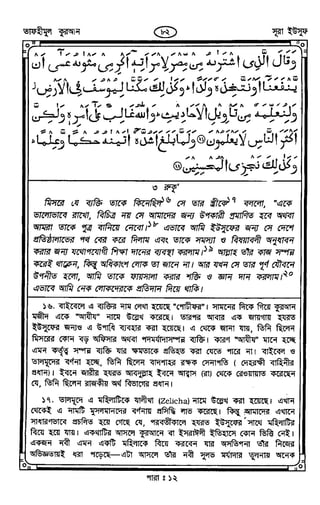 তাফহীমুল কুরআন
৮২
সূরা ইউসুফ
وَقَالَ الَّذِي اشْتَرٰىهُ مِنْ مِّصْرَ لِامْرَاَتِهٖٓ اَكْرِمِيْ مَثْوٰىهُ عَسٰٓى اَنْ
يَّنْفَعَنَآ اَوْ نَتَّخِذَهٗ وَلَدًا ؕ وَكَذٰلِكَ مَكَّنَّا لِيُوْسُفَ فِي الْاَرْضِ ؗ
وَلِنُعَلِّمَهٗ مِنْ تَاْوِيْلِ الْاَحَادِيْثِ ؕ وَاللّٰهُ غَالِبٌ عَلٰٓى اَمْرِهٖ وَلٰكِنَّ
اَكْثَرَ النَّاسِ لَا يَعْلَمُوْنَ ﴿۲۱﴾ وَلَمَّا بَلَغَ اَشُدَّهٗٓ اٰتَيْنٰهُ حُكْمًا وَّعِلْمًا ؕ
وَكَذٰلِكَ نَجْزِي الْمُحْسِنِيْنَ ﴿۲۲﴾
৩ রুকূ'
মিসরে যে ব্যক্তি তাকে কিনেছিল১৬ সে তার স্ত্রীকে১৭ বললো, "একে
ভালোভাবে রাখো, বিচিত্র নয় সে আমাদের জন্য উপকারী প্রমাণিত হবে অথবা
আমরা তাকে পুত্র বানিয়ে নেবো।"১৮ এভাবে আমি ইউসুফের জন্য সে দেশে
প্রতিষ্ঠালাভের পথ বের করে দিলাম এবং তাকে সমস্যা ও বিষয়াবলী অনুধাবন
করার জন্য যথোপযোগী শিক্ষা দানের ব্যবস্থা করলাম।১৯ আল্লাহ তাঁর কাজ সম্পন্ন
করেই থাকেন, কিন্তু অধিকাংশ লোক তা জানে না। আর যখন সে তার পূর্ণ যৌবনে
উপনীত হলো, আমি তাকে ফায়সালা করার শক্তি ও জ্ঞান দান করলাম।২০
এভাবে আমি নেক লোকদেরকে প্রতিদান দিয়ে থাকি।
১৬. বাইবেলে এ ব্যক্তির নাম লেখা হয়েছে "পোটীফর"। সামনের দিকে গিয়ে কুরআন
মজীদ একে "আযীয" নামে উল্লেখ করেছে। তারপর আবার এক জায়গায় হযরত
ইউসুফের জন্যও এ উপাধি ব্যবহার করা হয়েছে। এ থেকে জানা যায়, তিনি ছিলেন
মিসরের কোন বড় অফিসার অথবা পদমর্যাদাসম্পন্ন ব্যক্তি। কারণ "আযীয" মানে হচ্ছে
এমন কর্তৃত্ব সম্পন্ন ব্যক্তি যার ক্ষমতাকে প্রতিহত করা যেতে পারে না। বাইবেল ও
তালমূদের বর্ণনা হচ্ছে, তিনি ছিলেন বাদশাহর রক্ষক সেনাপতি (দেহরক্ষী বাহিনীর
প্রধান)। ইবনে জারীর হযরত আবদুল্লাহ ইবনে আব্বাস (রা) থেকে রেওয়ায়াত করেছেন
যে, তিনি ছিলেন রাজকীয় অর্থ বিভাগের প্রধান।
১৭. তালমূদে এ মহিলাটিকে যালীখা (Zelicha) নামে উল্লেখ করা হয়েছে। এখান
থেকেই এ নামটি মুসলমানদের বর্ণনায় প্রসিদ্ধি লাভ করেছে। কিন্তু আমাদের এখানে
সাধারণভাবে প্রচলিত হয়ে গেছে যে, পরবর্তীকালে হযরত ইউসুফের সাথে মহিলাটির
বিয়ে হয়ে যায়। একথাটির আসলে কুরআনে বা ইসরাঈলী ইতিহাসে কোন ভিত্তি নেই।
একজন নবী এমন একটি মহিলাকে বিয়ে করবেন যার অসতিপনা তাঁর নিজের
অভিজ্ঞতায়ই ধরা পড়েছে—এটা আসলে তাঁর নবী সুলভ মর্যাদার তুলনায় অনেক
পারা : ১২